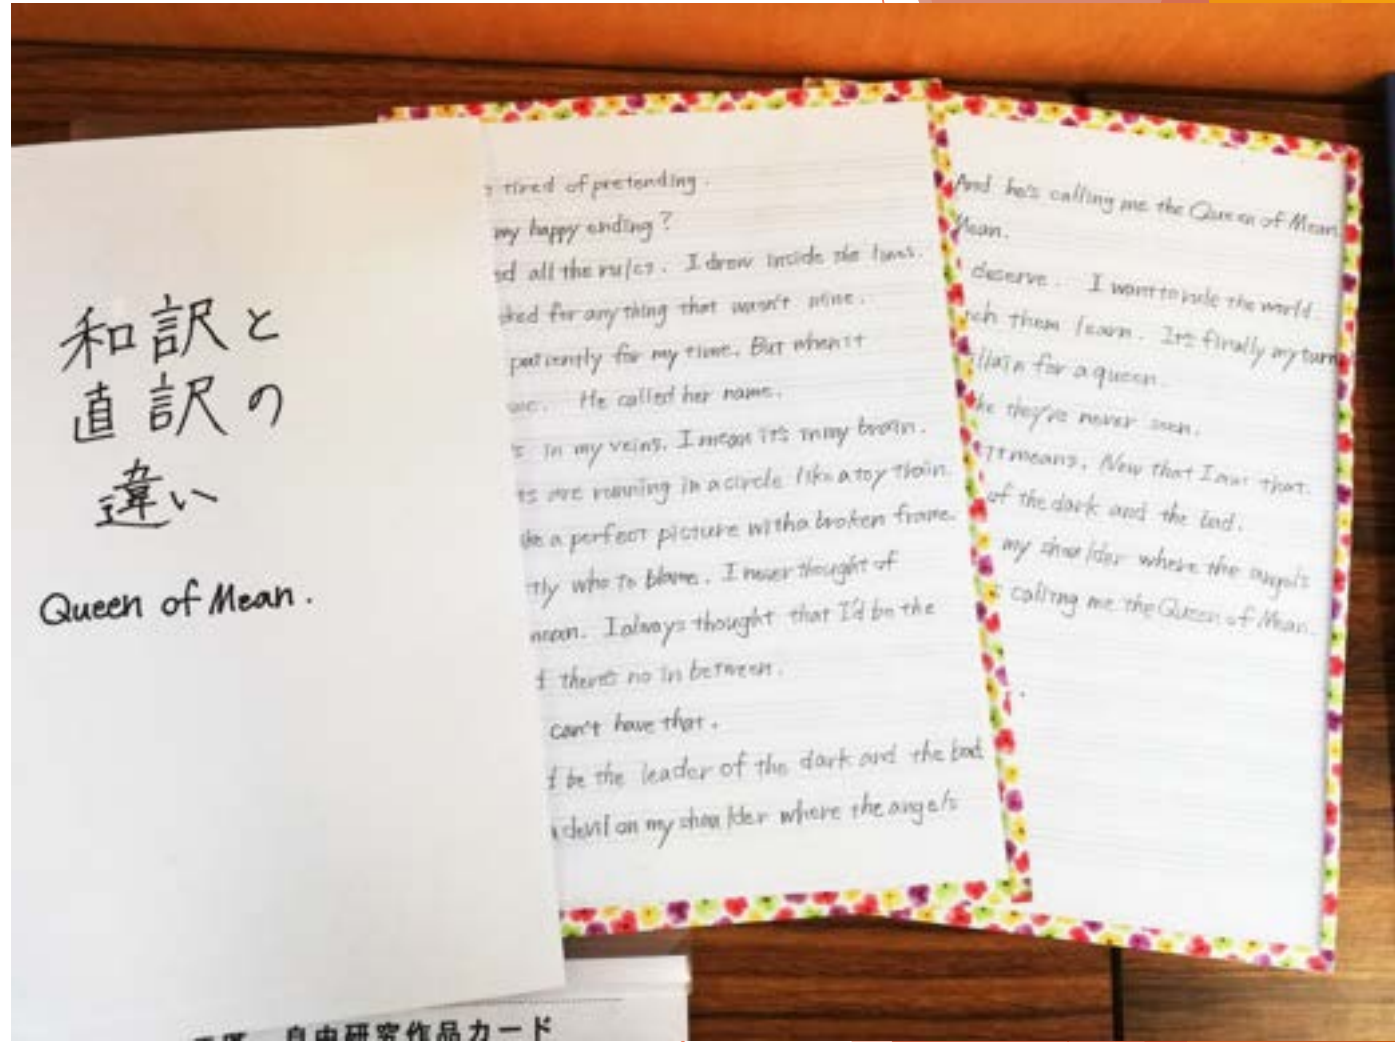 和訳と
直訳の
違い
Queen of Mean.
tired of pretending.
my happy ending?
ed all the rules. I drew inside the lines.
ked for anything that wasn't mine.
patiently for my time. But when it
He called her name.
s in my veins. I mean it's in my brain.
ts are running in a circle like a toy train.
ke a perfect picture with a broken frame.
tly who to blame. I never thought of
mean. I always thought that I'd be the
there's no in between.
can't have that.
be the leader of the dark and the bad
devil on my shoulder where the angels
And he's calling me the Queen of Mean.
Mean.
deserve. I want to rule the world.
ch them learn. It's finally my turn
illain for a queen.
ke they've never seen.
it means. Now that I am that.
of the dark and the bad.
my shoulder where the angels
calling me the Queen of Mean.
自由研究作品カード